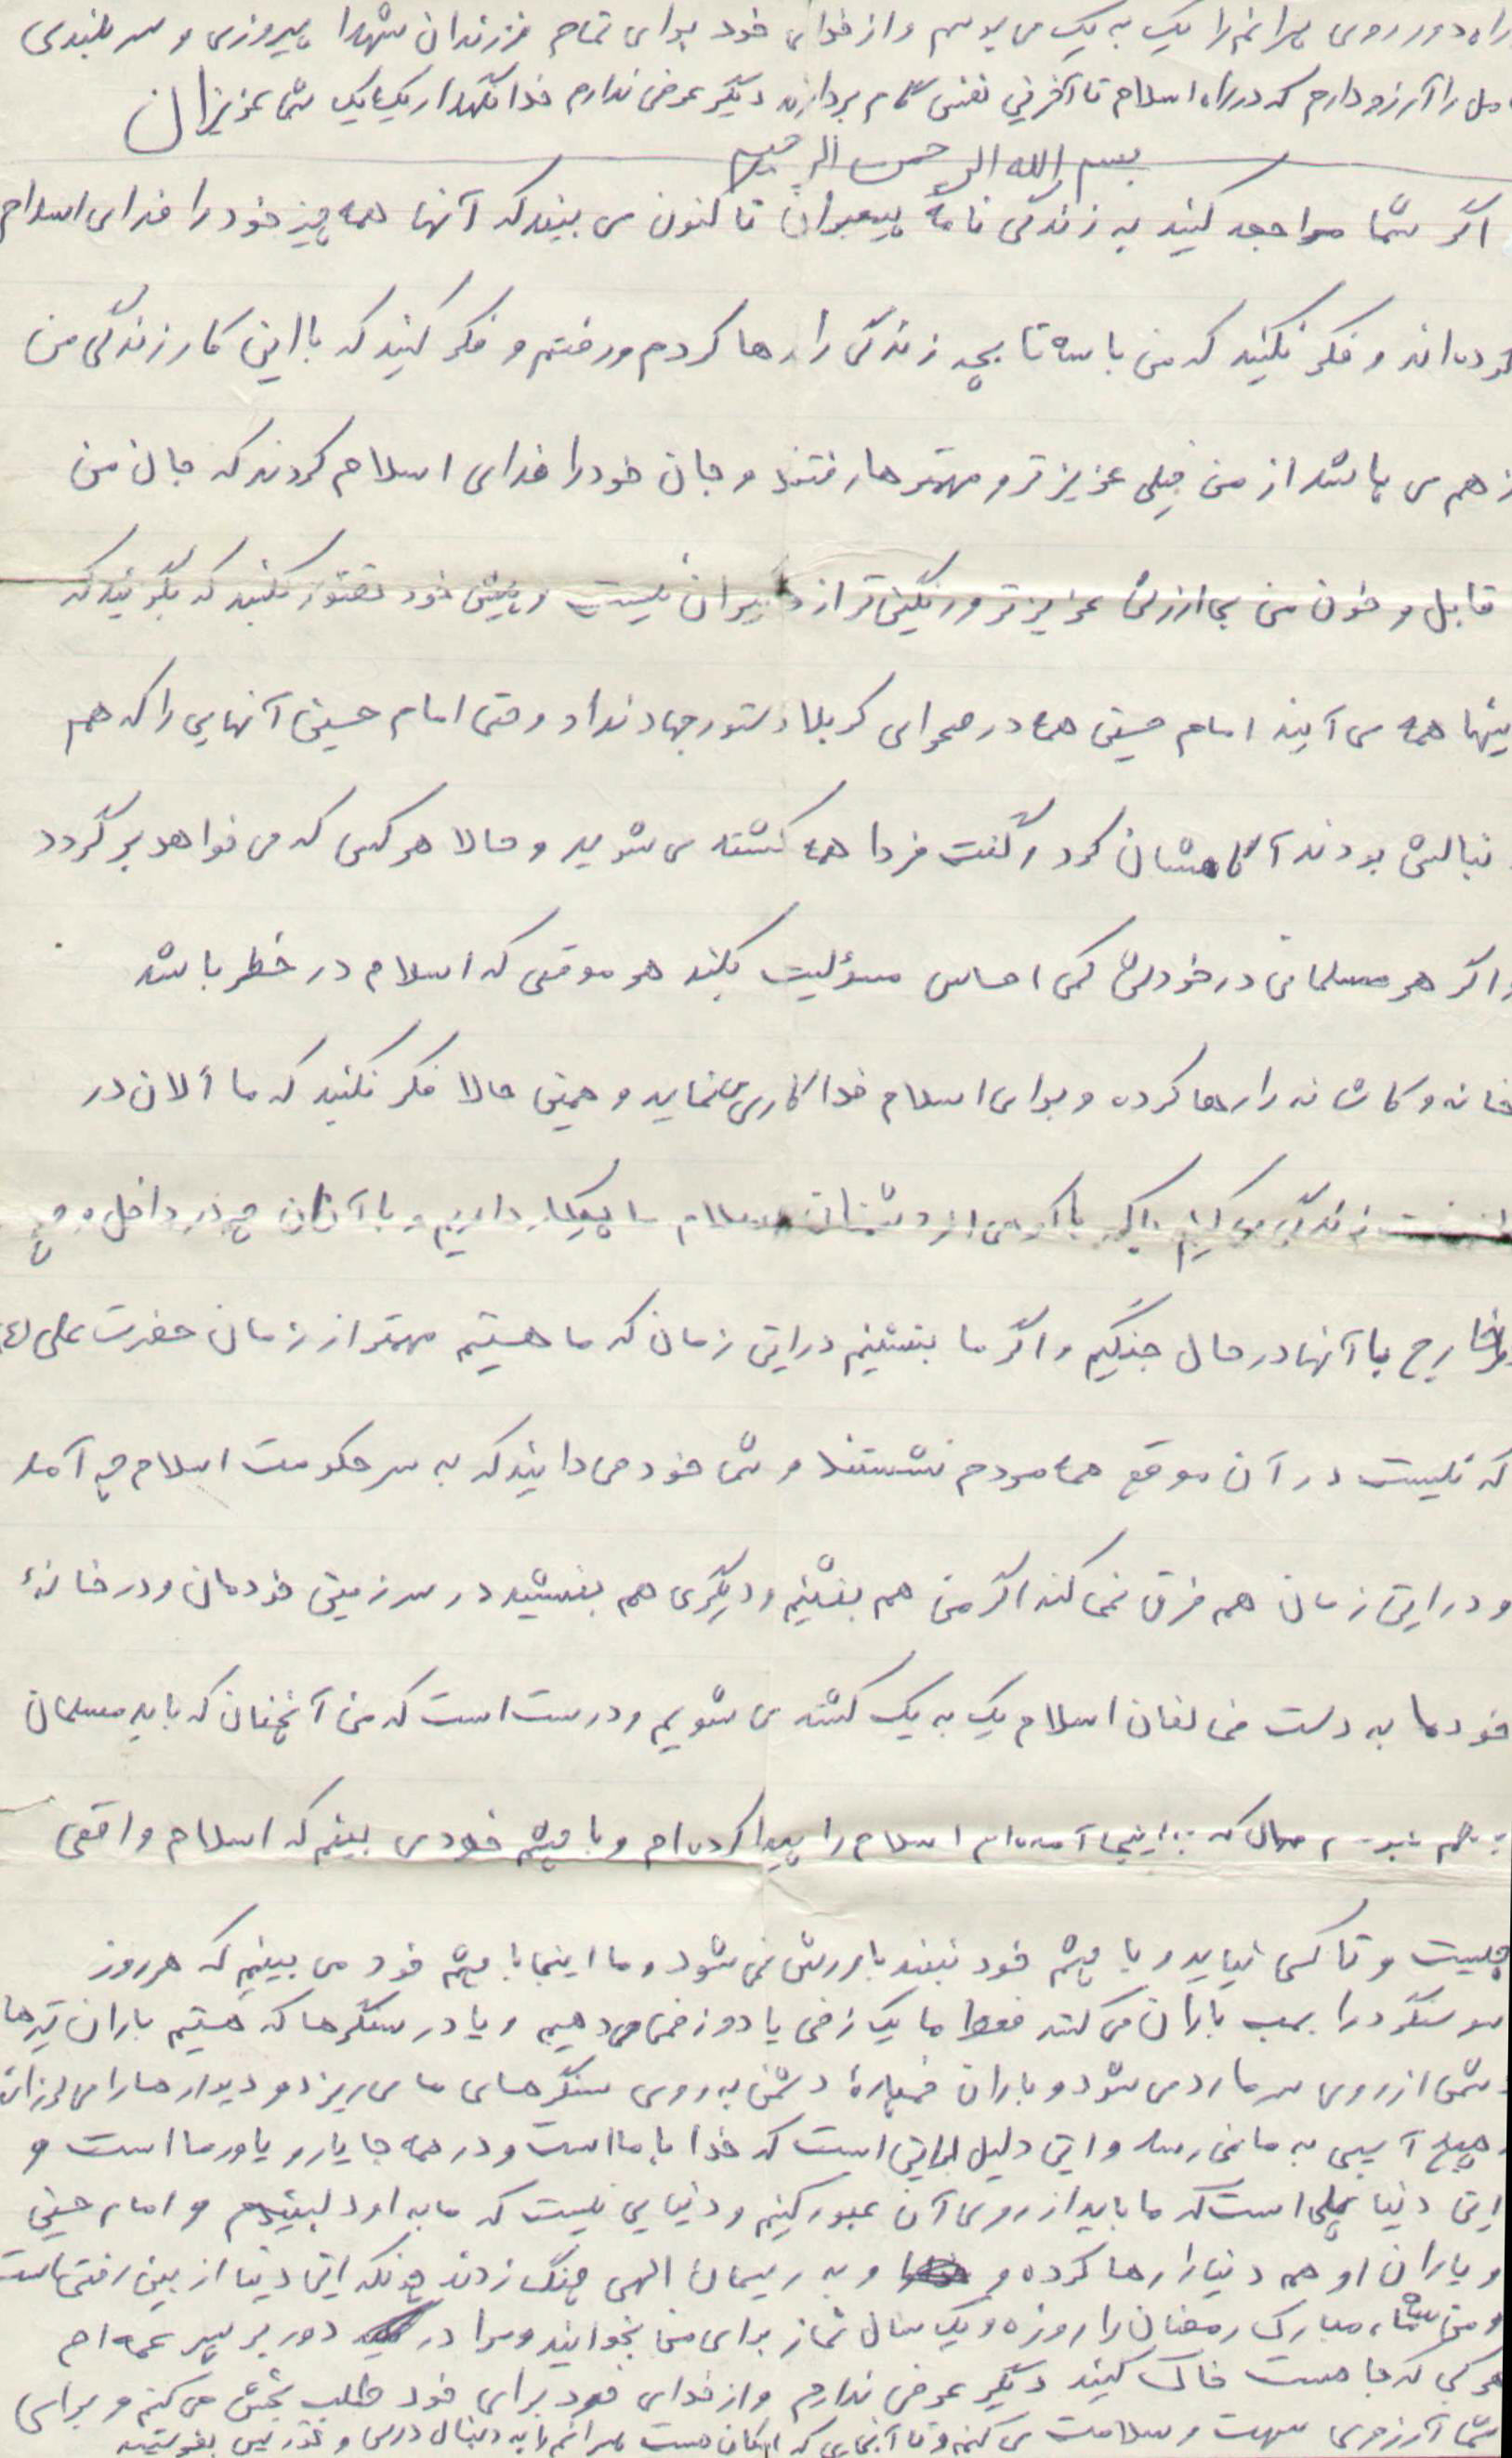 راه دور روی پسرانم را یک به یک می بوسم و از خدای خود برای تمام فرزندان شهدا پیروزی و سربلندی
را آرزو دارم که در راه اسلام تا آخرین نفس گام بردارند دیگر عرضی ندارم خدا نگهدار یک یک شما عزیزان
بسم الله الرحمن الرحیم
اگر شما مراجعه کنید به زندگی نامهٔ پیغمبران تا کنون می بینید که آنها همه چیز خود را فدای اسلام
کرده اند و فکر نکنید که من با سه تا بچه زندگی را رها کردم و رفتم و فکر کنید که با این کار زندگی من
هم می پاشد از من خیلی عزیزتر و مهمتر ها رفتند و جان خود را فدای اسلام کردند که جان من
قابل و خون من با ارزش عزیزتر و رنگین تر از دیگران نیست و پیش خود تصور نکنید که بگوئید که
اینها همه می آیند امام حسین هم در صحرای کربلا دستور جهاد نداد و حتی امام حسین آنهایی را که هم
دنبالش بودند آگاهشان کرد و گفت فردا همه کشته می شوید و حالا هر کس که می خواهد برگردد
و اگر هر مسلمانی در خودش کمی احساس مسؤلیت بکند هر موقعی که اسلام در خطر باشد
خانه و کاشانه را رها کرده و برای اسلام فداکاری می نماید و همین حالا فکر نکنید که ما الان در
زندگی می کنیم بلکه با گروهی از دشمنان اسلام پیکار داریم و با آنان چه در داخل و چه
در خارج با آنها در حال جنگیم و اگر ما بنشینیم در این زمان که ما هستیم مهمتر از زمان حضرت علی (ع)
که نیست در آن موقع همه مردم نشستند و شما خود می دانید که به سر حکومت اسلام چه آمد
و در این زمان هم فرق نمی کند اگر من هم بنشینم و دیگری هم بنشیند در سرزمین خودمان و در خانهٔ
خودما به دست مخالفان اسلام یک به یک کشته می شویم و درست است که من آنچنان که باید مسلمان
هم نبودم حال که به اینجا آمده ام اسلام را پیدا کرده ام و با چشم خود می بینم که اسلام واقعی
چیست و تا کسی نیاید و با چشم خود نبیند باورش نمی شود و ما اینجا با چشم خود می بینیم که هر روز
سوسنگرد را بمب باران می کنند فقط ما یک زخمی یا دو زخمی می دهیم و یا در سنگرها که هستیم باران تیرها
دشمن از روی سر ما رد می شود و باران خمپارهٔ دشمن به روی سنگرهای ما می ریزد و دیوارها را می لرزاند
هیچ آسیبی به ما نمی رسد و این دلیل براین است که خدا با ما است و در همه جا یار و یاور ما است و
این دنیا پلی است که ما باید از روی آن عبور کنیم و دنیایی نیست که ما به او دل ببندیم و امام حسین
و یاران او هم دنیا را رها کرده و و به ریسمان الهی چنگ زدند چونکه این دنیا از بین رفتنی است
و من ماه مبارک رمضان را روزه و یک سال نماز برای من بخوانید و مرا در دور بر پسر عمه ام
هر کجا که جا هست خاک کنید دیگر عرضی ندارم و از خدای خود برای خود طلب بخشش می کنم و برای
شما آرزوی صحت و سلامت می کنم و تا آنجایی که امکان هست پسرانم را به دنبال درس و تدریس بفرستید